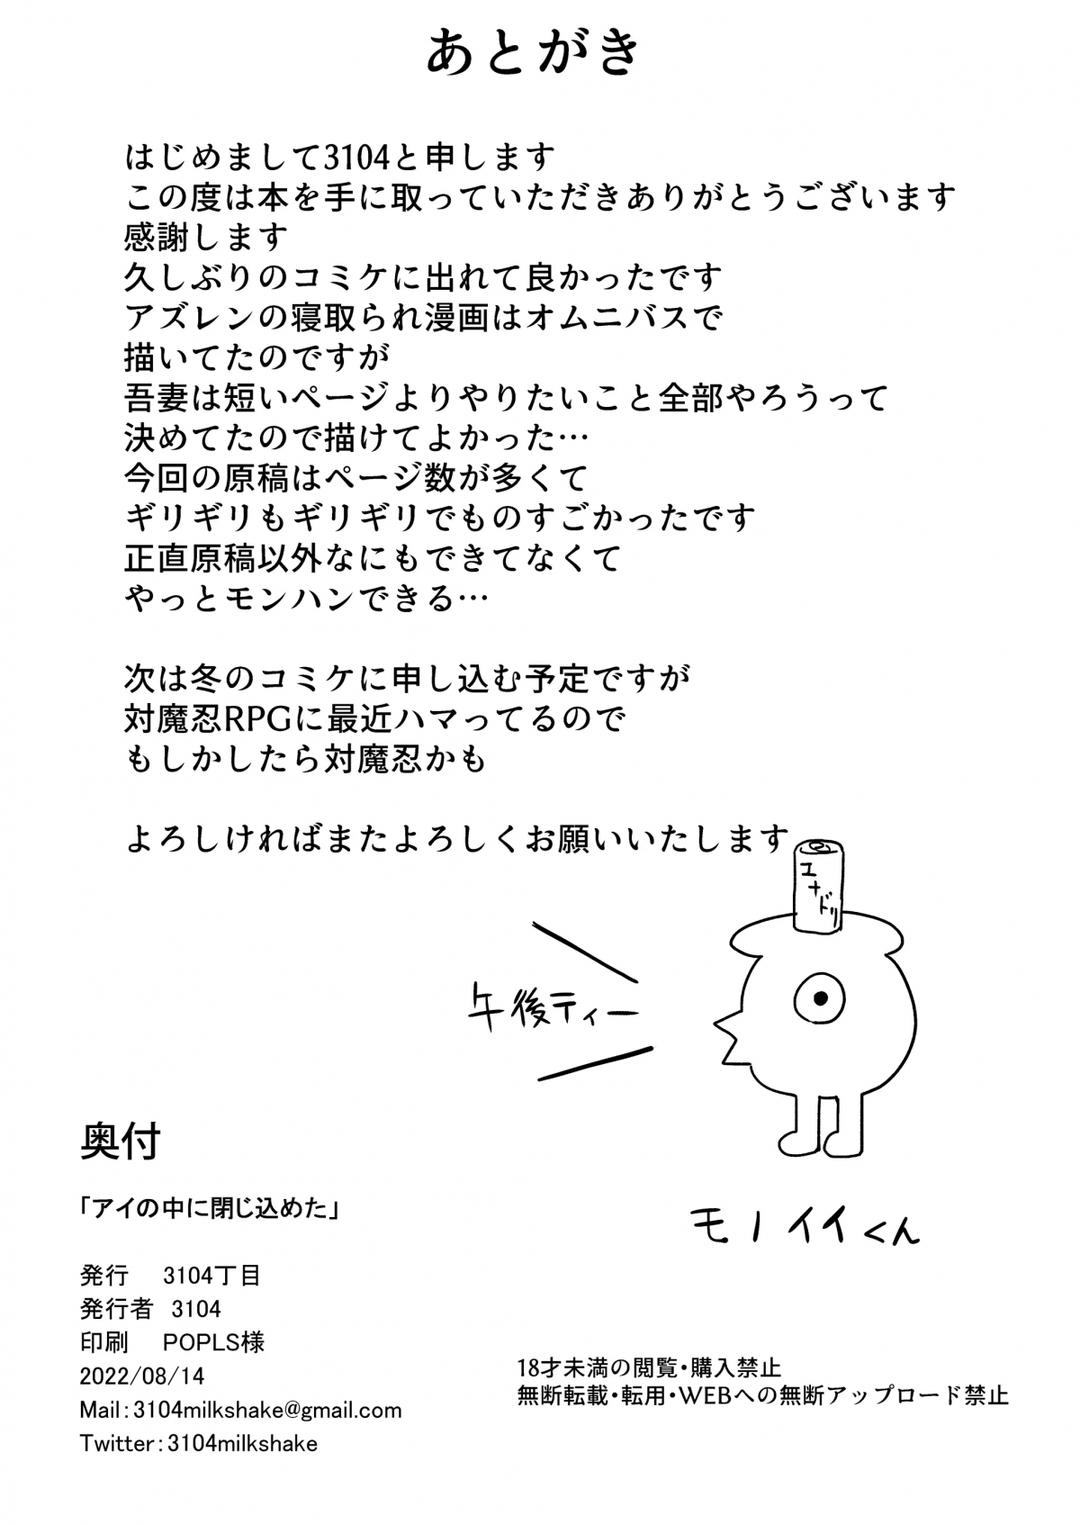 あとがき
はじめまして3104と申します
この度は本を手に取っていただきありがとうございます
感謝します
久しぶりのコミケに出れて良かったです
アズレンの寝取られ漫画はオムニバスで
描いてたのですが
吾妻は短いページよりやりたいこと全部やろうって
決めてたので描けてよかった…
今回の原稿はページ数が多くて
ギリギリもギリギリでものすごかったです
正直原稿以外なにもできてなくて
やっとモンハンできる…
次は冬のコミケに申し込む予定ですが
対魔忍RPGに最近ハマってるので
もしかしたら対魔忍かも
よろしければまたよろしくお願いいたします
エナドリ
午後ティー
モノイイくん
奥付
「アイの中に閉じ込めた」
発行 3104丁目
発行者 3104
印刷 POPLS様
2022/08/14
Mail:3104milkshake@gmail.com
Twitter:3104milkshake
18才未満の閲覧・購入禁止
無断転載・転用・WEBへの無断アップロード禁止